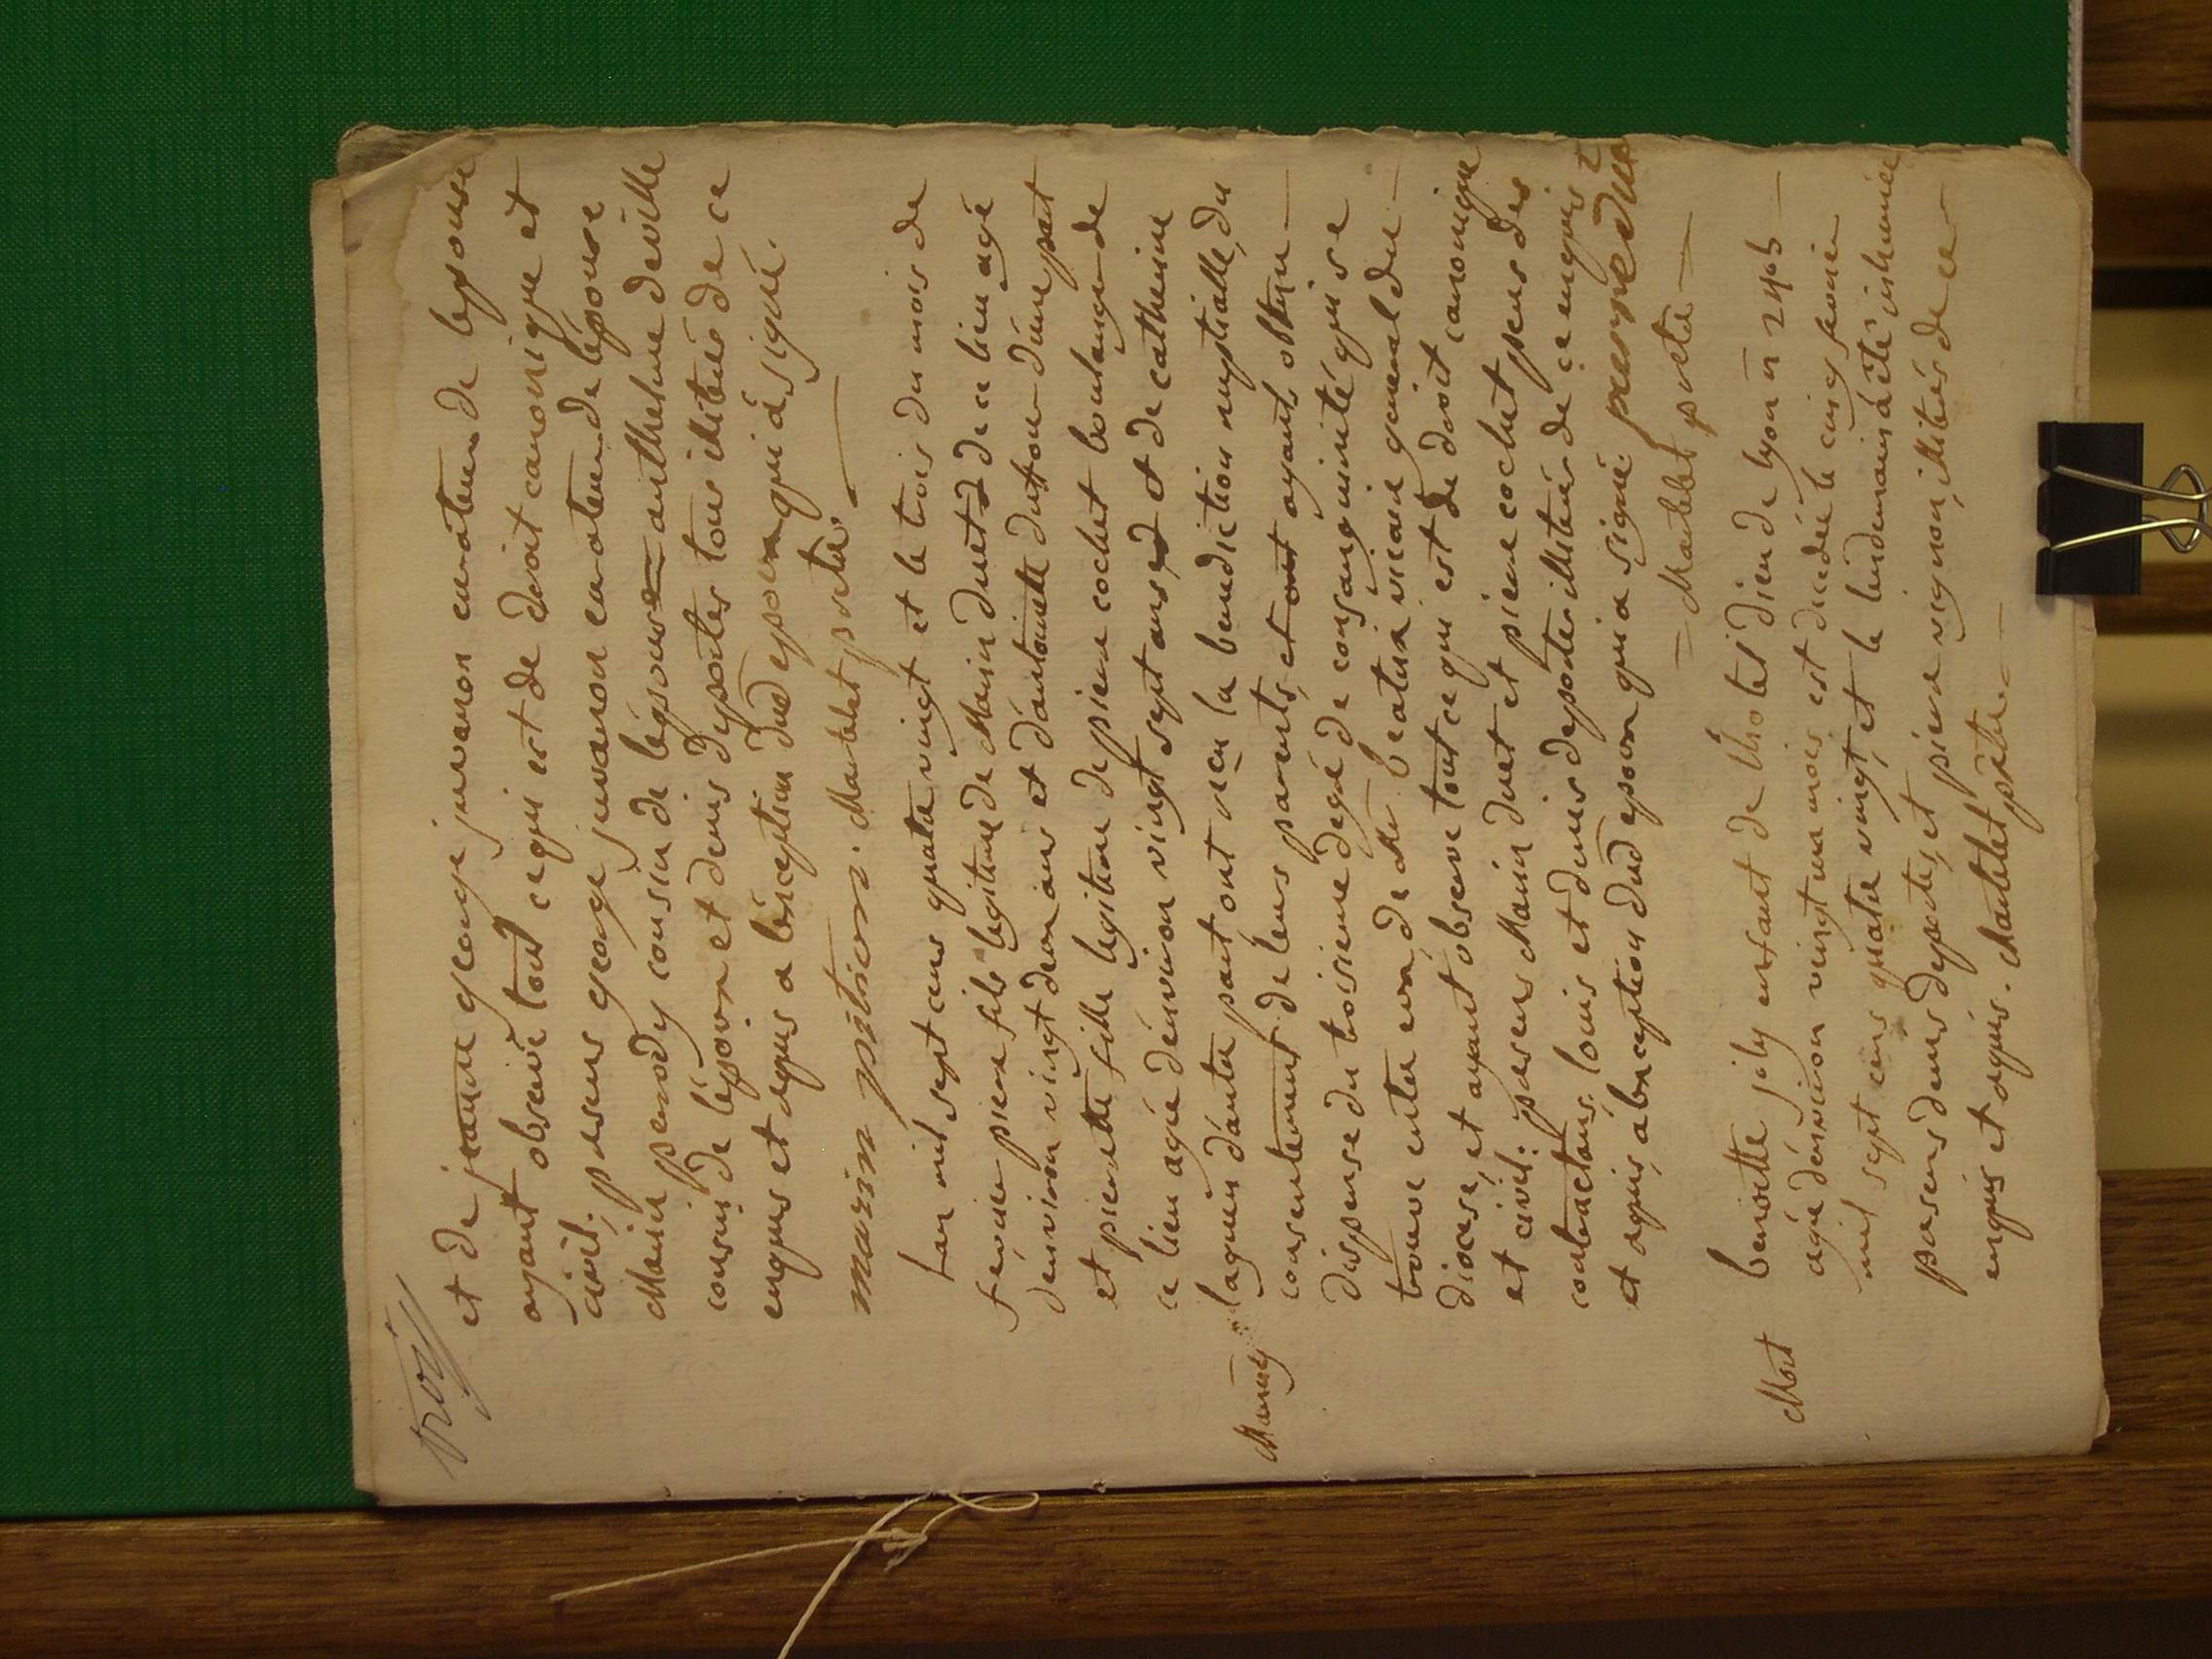 trois
et de jeanne george juvanon curateur de lepouse
ayant observé tout ce qui est de droit canonique et
civil. presens george juvanon curateur de lépouse
Marin perrody cousin de lépouse anthelme deville
cousin de lépoux et denis desportes tous illiterés de ce
enquis et requis a léxception dud epoux qui á signé.
marin pittiom. Martelet pretre.
Lan mil sept cens quatre vingt et le trois du mois de
fevrier pierre fils legitime de Marin duret de ce lieu agé
dénviron vingt deux ans et dántoinette dufour dúne part
et pierrette fille legitime de pierre cochet boulanger de
ce lieu agée dénviron vingt sept ans et de catherine
laguen dáutre part ont recu la benediction nuptialle, du
Mariage
consentement de leurs parents, et ayants obtenu
dispense du troisieme degré de consanguinité qui se
trouve entre eux, de Mr beatrix vicaire general du
diocese, et ayant observé tout ce qui est de droit canonique
et civil: presens Marin duret et pierre cochet peres des
contractans, louis et denis desportes illiterés de ce enquis
et requis, á léxception dud epoux qui a signé. pierre duret
Martelet pretre
Mort
benoitte joly enfant de lhotel dieu de lyon n 2465
agée dénviron vingt un mois est decedée le cinq fevrier
mil sept cens quatre vingt, et le lendemain á été inhumée
presens denis desportes, et pierre vignon, illiterés de ce
enquis et requis. Martelet prêtre.